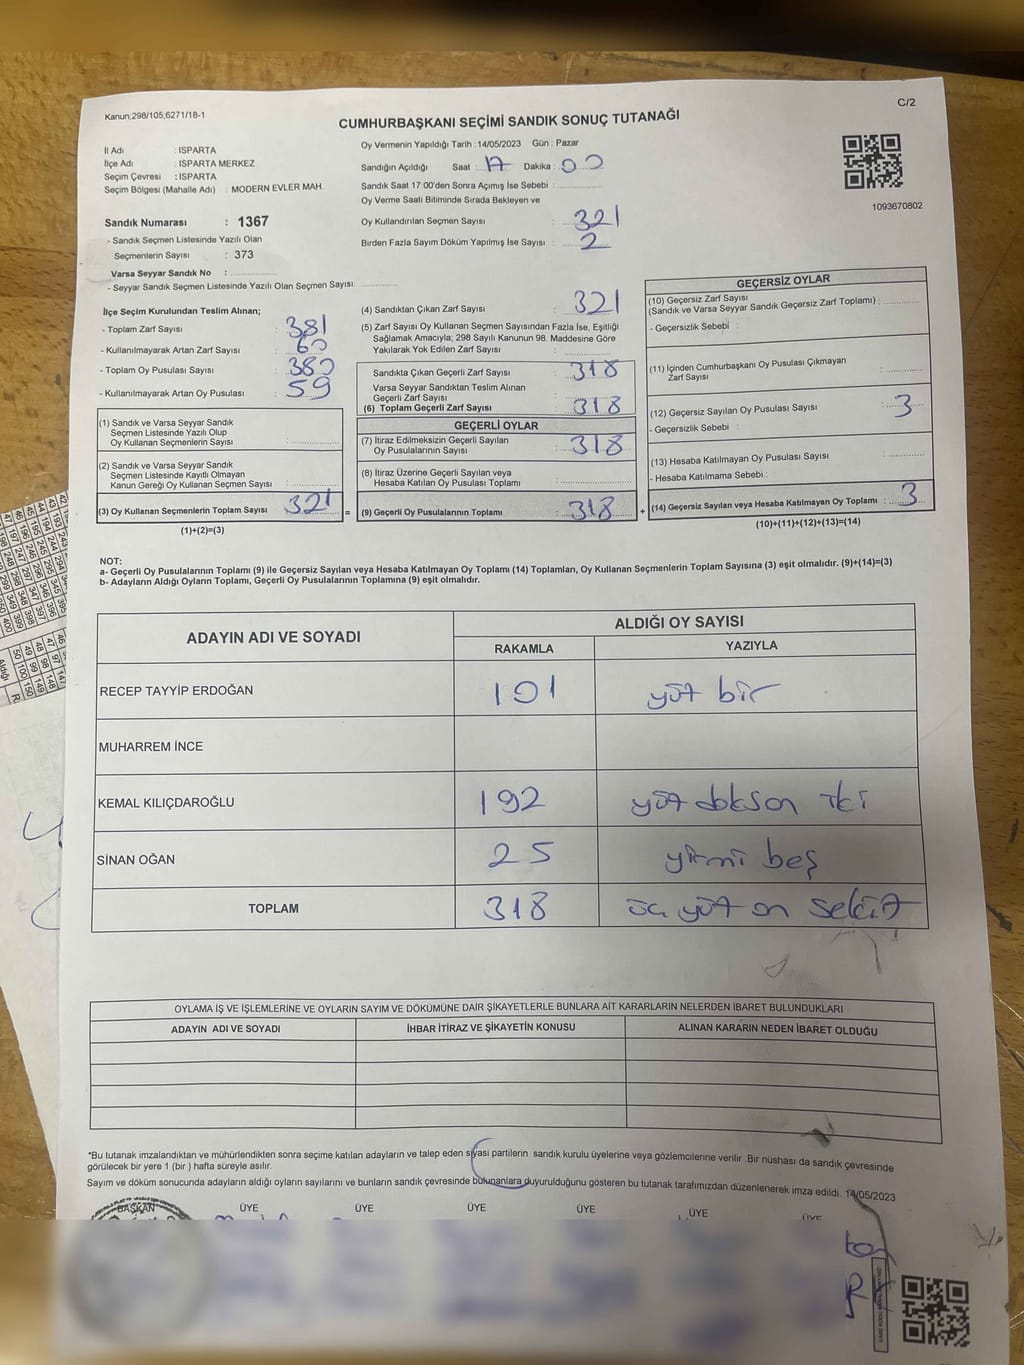 Kanun:298/105;6271/18-1
C/2
CUMHURBAŞKANI SEÇİMİ SANDIK SONUÇ TUTANAĞI
İl Adı : ISPARTA
İlçe Adı : ISPARTA MERKEZ
Seçim Çevresi : ISPARTA
Seçim Bölgesi (Mahalle Adı) : MODERN EVLER MAH.
Oy Vermenin Yapıldığı Tarih : 14/05/2023 Gün : Pazar
Sandığın Açıldığı Saat : 17 Dakika : 00
Sandık Saat 17.00'den Sonra Açımış İse Sebebi :
Oy Verme Saati Bitiminde Sırada Bekleyen ve
Oy Kullandırılan Seçmen Sayısı : 321
Birden Fazla Sayım Döküm Yapılmış İse Sayısı : 2
1093670802
Sandık Numarası : 1367
- Sandık Seçmen Listesinde Yazılı Olan
Seçmenlerin Sayısı : 373
Varsa Seyyar Sandık No :
- Seyyar Sandık Seçmen Listesinde Yazılı Olan Seçmen Sayısı:
İlçe Seçim Kurulundan Teslim Alınan;
- Toplam Zarf Sayısı : 381
- Kullanılmayarak Artan Zarf Sayısı : 60
- Toplam Oy Pusulası Sayısı : 380
- Kullanılmayarak Artan Oy Pusulası : 59
(1) Sandık ve Varsa Seyyar Sandık
Seçmen Listesinde Yazılı Olup
Oy Kullanan Seçmenlerin Sayısı :
(2) Sandık ve Varsa Seyyar Sandık
Seçmen Listesinde Kayıtlı Olmayan
Kanun Gereği Oy Kullanan Seçmen Sayısı :
(3) Oy Kullanan Seçmenlerin Toplam Sayısı : 321 =
(1)+(2)=(3)
(4) Sandıktan Çıkan Zarf Sayısı : 321
(5) Zarf Sayısı Oy Kullanan Seçmen Sayısından Fazla İse, Eşitliği
Sağlamak Amacıyla; 298 Sayılı Kanunun 98. Maddesine Göre
Yakılarak Yok Edilen Zarf Sayısı :
Sandıkta Çıkan Geçerli Zarf Sayısı : 318
Varsa Seyyar Sandıktan Teslim Alınan
Geçerli Zarf Sayısı :
(6) Toplam Geçerli Zarf Sayısı : 318
GEÇERLİ OYLAR
(7) İtiraz Edilmeksizin Geçerli Sayılan
Oy Pusulalarının Sayısı : 318
(8) İtiraz Üzerine Geçerli Sayılan veya
Hesaba Katılan Oy Pusulası Toplamı :
(9) Geçerli Oy Pusulalarının Toplamı : 318 +
GEÇERSİZ OYLAR
(10) Geçersiz Zarf Sayısı
(Sandık ve Varsa Seyyar Sandık Geçersiz Zarf Toplamı) :
- Geçersizlik Sebebi :
(11) İçinden Cumhurbaşkanı Oy Pusulası Çıkmayan
Zarf Sayısı :
(12) Geçersiz Sayılan Oy Pusulası Sayısı : 3
- Geçersizlik Sebebi :
(13) Hesaba Katılmayan Oy Pusulası Sayısı :
- Hesaba Katılmama Sebebi :
(14) Geçersiz Sayılan veya Hesaba Katılmayan Oy Toplamı : 3
(10)+(11)+(12)+(13)=(14)
NOT:
a- Geçerli Oy Pusulalarının Toplamı (9) ile Geçersiz Sayılan veya Hesaba Katılmayan Oy Toplamı (14) Toplamları, Oy Kullanan Seçmenlerin Toplam Sayısına (3) eşit olmalıdır. (9)+(14)=(3)
b- Adayların Aldığı Oyların Toplamı, Geçerli Oy Pusulalarının Toplamına (9) eşit olmalıdır.
ADAYIN ADI VE SOYADI
ALDIĞI OY SAYISI
RAKAMLA YAZIYLA
RECEP TAYYİP ERDOĞAN 101 yüz bir
MUHARREM İNCE
KEMAL KILIÇDAROĞLU 192 yüz doksan iki
SİNAN OĞAN 25 yirmi beş
TOPLAM 318 üç yüz on sekiz
OYLAMA İŞ VE İŞLEMLERİNE VE OYLARIN SAYIM VE DÖKÜMÜNE DAİR ŞİKAYETLERLE BUNLARA AİT KARARLARIN NELERDEN İBARET BULUNDUKLARI
ADAYIN ADI VE SOYADI İHBAR İTİRAZ VE ŞİKAYETİN KONUSU ALINAN KARARIN NEDEN İBARET OLDUĞU
*Bu tutanak imzalandıktan ve mühürlendikten sonra seçime katılan adayların ve talep eden siyasi partilerin sandık kurulu üyelerine veya gözlemcilerine verilir .Bir nüshası da sandık çevresinde
görülecek bir yere 1 (bir ) hafta süreyle asılır.
Sayım ve döküm sonucunda adayların aldığı oyların sayılarını ve bunların sandık çevresinde bulunanlara duyurulduğunu gösteren bu tutanak tarafımızdan düzenlenerek imza edildi. 14/05/2023
BAŞKAN ÜYE ÜYE ÜYE ÜYE ÜYE ÜYE